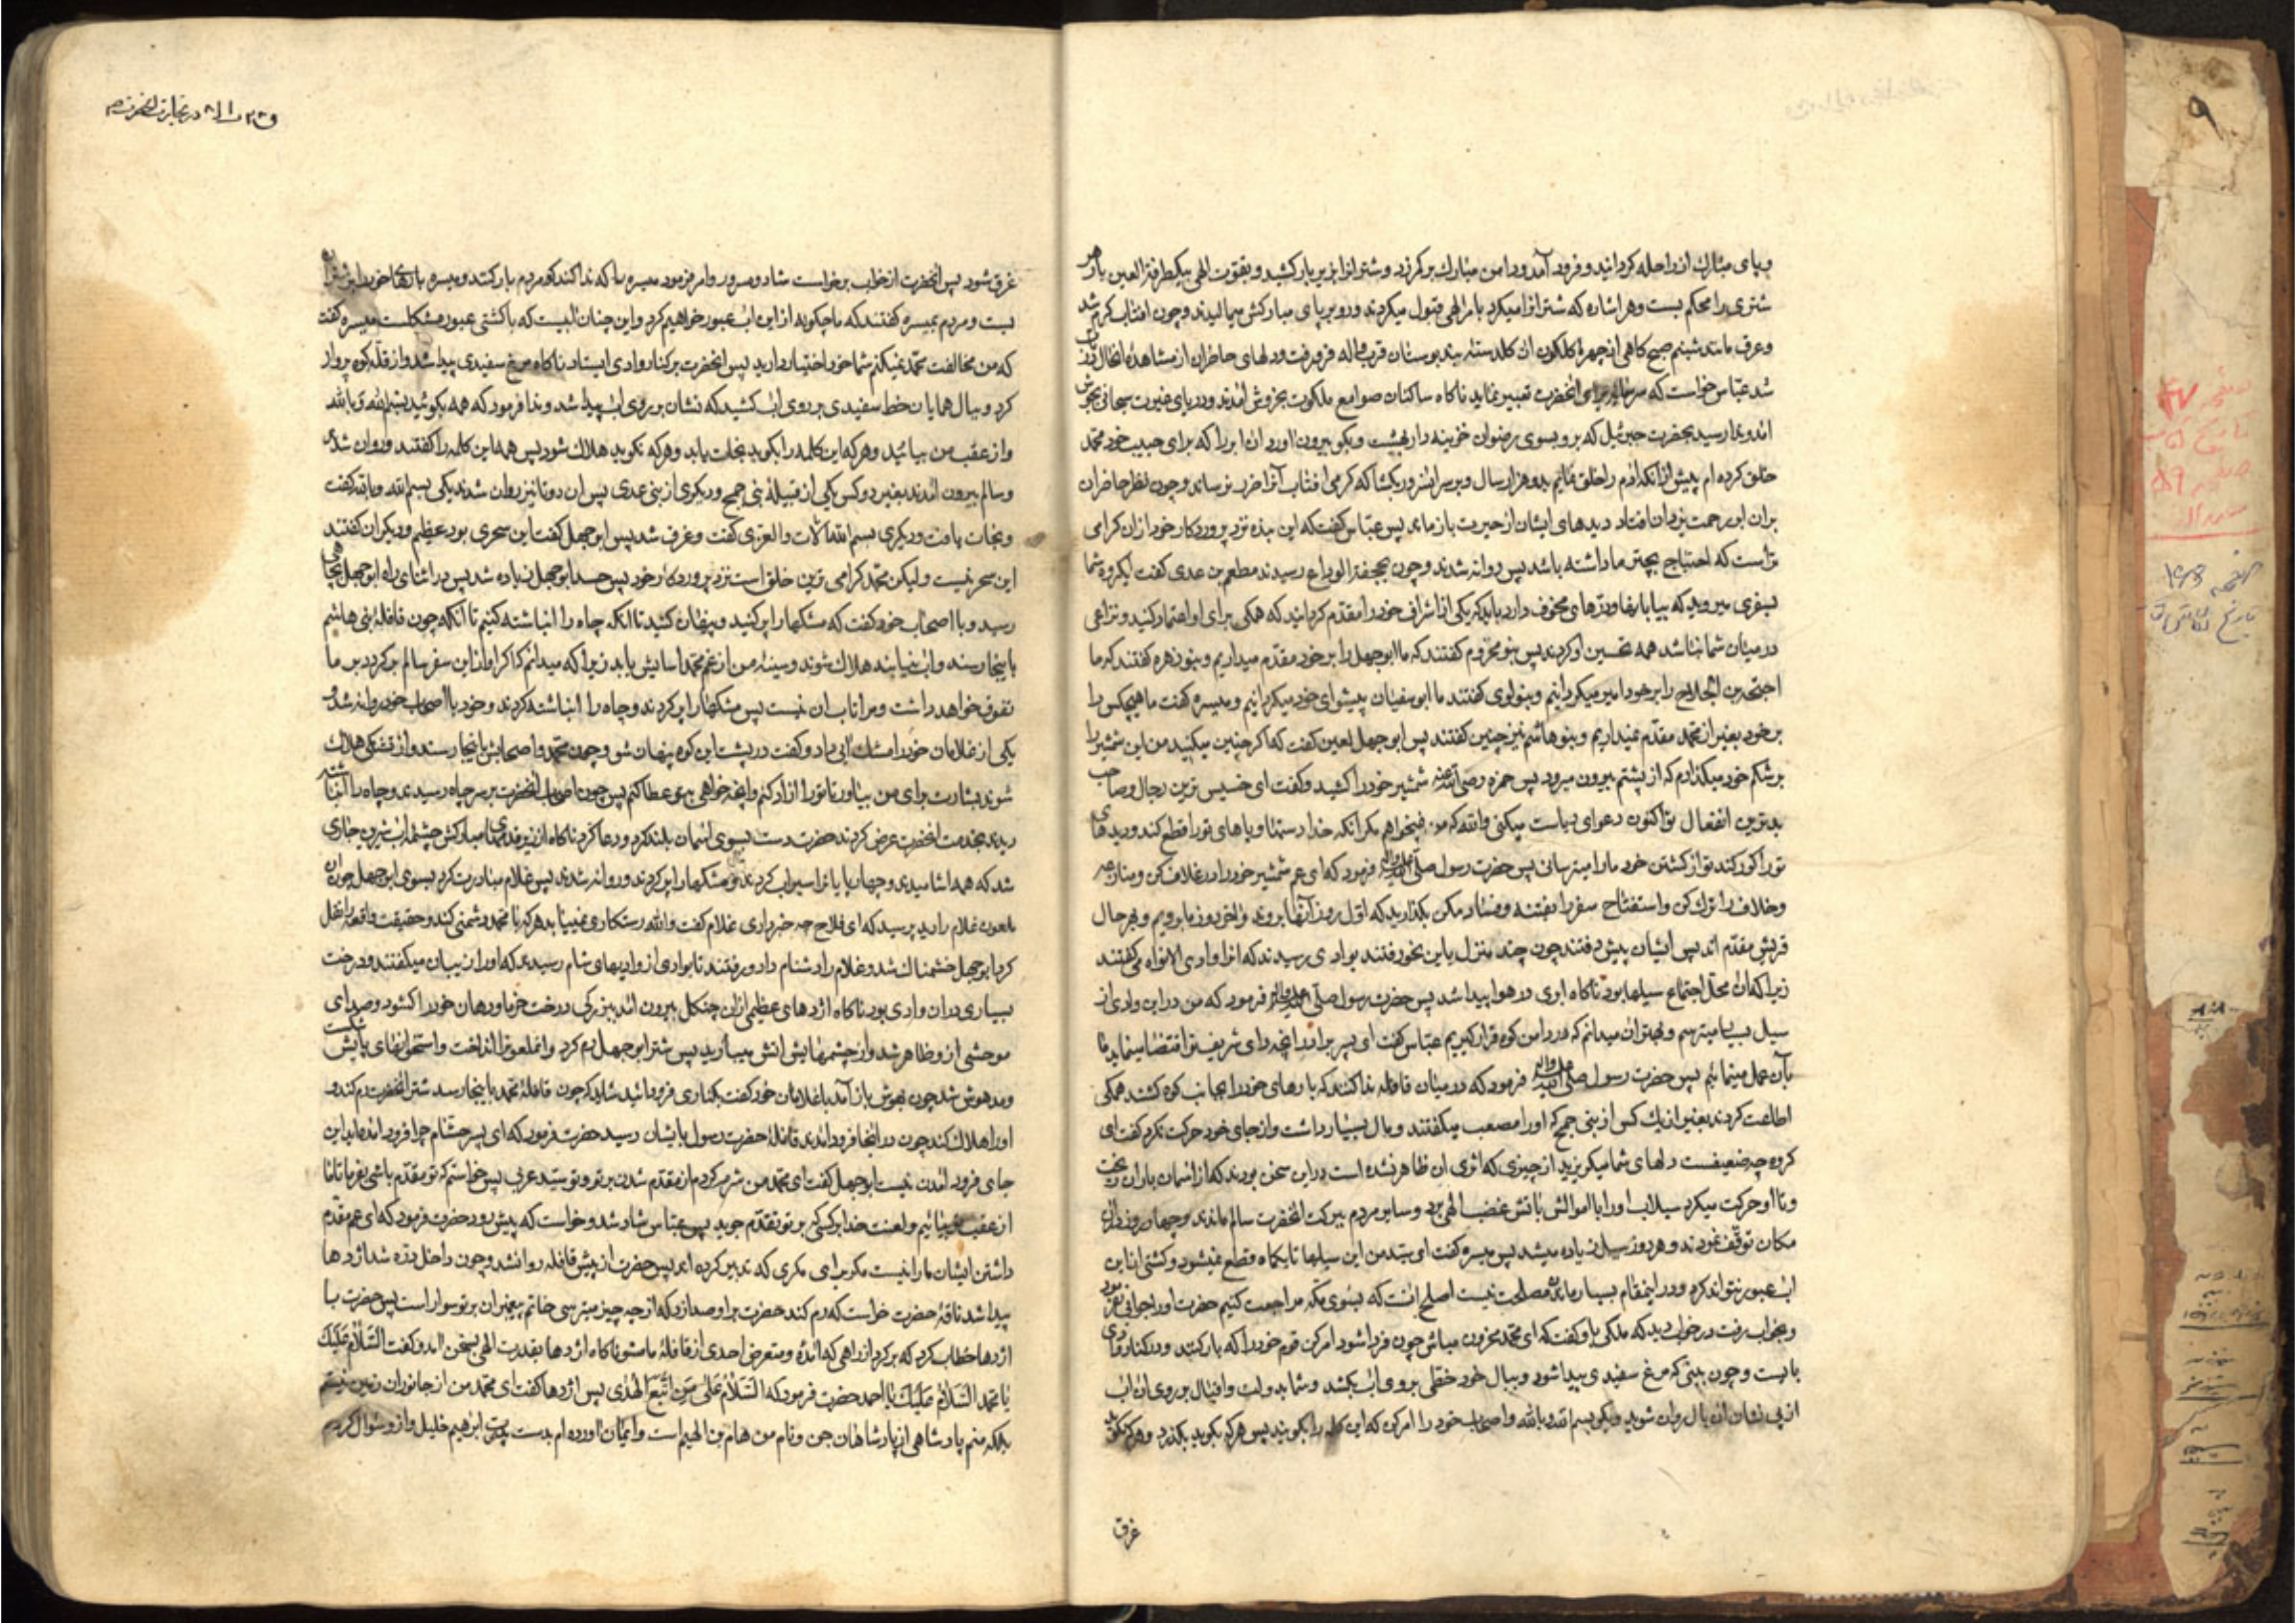 و پای مبارک از راحله گردانید و فرود آمد و دامن مبارک بر کمر زد و شتران را بزیر بار کشید و بقوت الهی بیکطرفة العین بار هر
شتری را محکم بست و هر اشاره که شتران را میکرد بامر الهی قبول میکردند و رو بر پای مبارکش میمالیدند و چون افتاب گرم شد
و عرق مانند شبنم صبح گاهی از چهرهٔ گلگون ان گلدسته
شد عباس خواست که برای انحضرت تعبیر نماید ناگاه ساکنان صوامع ملکوت بخروش امدند و دریای غیرت سبحانی بجوش
امد و ندا رسید بحضرت جبرئیل که برو بسوی رضوان خزینه دار بهشت و بگو بیرون اورد ان ابر را که برای حبیب خود محمد
خلق کرده ام پیش از انکه ادم را خلق نمایم بدو هزار سال و بر سر انسرور بگشا که گرمی افتاب آنرا ضرر نرساند و چون نظر حاضران
بران ابر رحمت یزدان افتاد دیدهای ایشان از حیرت باز ماند پس عباس گفت که این بنده نزد پروردگار خود ازان گرامی
تر است که احتیاج بچتر ما داشته باشد پس روانه شدند و چون بجحفة الوداع رسیدند مطعم بن عدی گفت ایگروه شما
بسفری میروید که بیابانها و درّهای مخوف دارد باید که یکی از اشراف خود را مقدم گردانید که همگی برای او اعتماد کنید و نزاعی
در میان شما نباشد همه تحسین او کردند پس بنو مخزوم گفتند که ما ابو جهل را بر خود مقدم میداریم و بنو زهره گفتند که ما
احیحة بن الجلاح را بر خود امیر میگردانیم و بنو لوی گفتند ما ابو سفیان پیشوای خود میگردانیم و میسره گفت ما هیچکس را
بر خود بغیر از محمد مقدم نمیداریم و بنو هاشم نیز چنین گفتند پس ابو جهل لعین گفت که اگر چنین میکنید من این شمشیر را
بر شکم خود میگذارم که از پشتم بیرون میرود پس حمزه رضی الله عنه شمشیر خود را کشید و گفت ای خسیس ترین رجال و صاحب
بدترین افعال تو اکنون دعوای ریاست میکنی والله که من نمیخواهم مگر انکه خدا دستها و پاهای تو را قطع کند و دیدهای
تو را کور کند تو از کشتن خود ما را میترسانی پس حضرت رسول صلی الله علیه و اله فرمود که ای عم شمشیر خود را در غلاف کن و منازعه
و خلاف را ترک کن و استفتاح سفر را بفتنه و فساد مکن بگذارید که اول روز آنها بروند و اخر روز ما برویم و بهر حال
قریش مقدم اند پس ایشان پیش رفتند چون چند منزل باین نحو رفتند بوادی رسیدند که انرا وادی الامواه می گفتند
زیرا که ان محل اجتماع سیلها بود ناگاه ابری در هوا پیدا شد پس حضرت رسول صلی الله علیه و اله فرمود که من در این وادی از
سیل بسیار میترسم و بهتر ان میدانم که در دامن کوه قرار گیریم عباس گفت ای پسر برادر انچه رای شریف تو اقتضا مینماید ما
بآن عمل مینمائیم پس حضرت رسول صلی الله علیه و اله فرمود که در میان قافله ندا کنند که بارهای خود را بجانب کوه کشند همگی
اطاعت کردند بغیر از یک کس از بنی جمح که او را مصعب میگفتند و مال بسیار داشت و از جای خود حرکت نکرد گفت ای
گروه چه ضعیفست دلهای شما میگریزید از چیزی که اثری ان ظاهر نشده است در این سخن بودند که از اسمان باران ریخت
و تا او حرکت میکرد سیلاب او را با اموالش بآتش غضب الهی برد و سایر مردم ببرکت انحضرت سالم ماندند و چهار روز دران
مکان توقف نمودند و هر روز سیل زیاده میشد پس میسره گفت ای سید من این سیلها تا یکماه قطع نمیشود و کشتی از این
اب عبور نتواند کرد و در اینمقام بسیار ماندن مصلحت نیست اصلح انست که بسوی مکه مراجعت کنیم حضرت او را جوابی نفرمود
و بخواب رفت در خواب دید که ملکی باو گفت که ای محمد محزون مباش چون فردا شود امر کن قوم خود را که بار کنند و در کنار وادی
بایست و چون ببینی که مرغ سفیدی پیدا شود و ببال خود خطی بروی اب بکشد و شما بدولت و اقبال بر روی ان اب
از پی نشان ان بال روان شوید و بگو بسم الله و بالله و اصحاب خود را امر کن که این کلمه را بگویند پس هر که بگوید بگذرد و هر که نگوید
غرق
در تجارت انحضرت
غرق شود پس انحضرت از خواب برخواست شاد و مسرور و امر فرمود میسره را که ندا کند که مردم بار کنند و میسره بارهای خود را بر شتران
بست و مردم بمیسره گفتند که ما چگونه از این اب عبور خواهیم کرد و این چنان ابیست که با کشتی عبور مشکلست میسره گفت
که من مخالفت محمد نمیکنم شما خود اختیار دارید پس انحضرت بر کنار وادی ایستاد ناگاه مرغ سفیدی پیدا شد و از قلهٔ کوه پرواز
کرد و ببال همایان خط سفیدی بر روی اب کشید که نشان بر روی اب پیدا شد و ندا فرمود که همه بگوئید بسم الله و بالله
و از عقب من بیائید و هر که این کلمه را بگوید نجات یابد و هر که نگوید هلاک شود پس همه این کلمه را گفتند و روان شدند
و سالم بیرون امدند بغیر دو کس یکی از قبیلهٔ بنی جمح و دیگری از بنی عدی پس ان دو تا نیز روان شدند یکی بسم الله و بالله گفت
و نجات یافت و دیگری بسم اللات و العزی گفت و غرق شد پس ابو جهل گفت این سحری بود عظیم و دیگران گفتند
این سحر نیست و لیکن محمد گرامی ترین خلق است نزد پروردگار خود پس حسد ابو جهل زیاده شد پس در اثنای راه ابو جهل بچاهی
رسید و با اصحاب خود گفت که مشکها را پر کنید و پنهان کنید تا انکه چاه را انباشته کنیم تا انکه چون قافلهٔ بنی هاشم
باینجا رسند و اب نیابند هلاک شوند و سینهٔ من از غم محمد اسایش یابد زیرا که میدانم که اگر او از این سفر سالم برگردد بر ما
تفوق خواهد داشت و مرا تاب ان نیست پس مشکها را پر کردند و چاه را انباشته کردند و خود با اصحاب خود روانه شد و
یکی از غلامان خود را مشک ابی داد و گفت در پشت این کوه پنهان شو و چون محمد و اصحابش باینجا رسند و از تشنگی هلاک
شوند بشارت برای من بیاور تا تو را ازاد کنم و انچه خواهی بتو عطا کنم پس چون اصحاب انحضرت بر سر چاه رسیدند و چاه را انباشته
دیدند بخدمت انحضرت عرض کردند حضرت دست بسوی اسمان بلند کرد و دعا کرد ناگاه از زیر قدمهای مبارکش چشمهٔ اب شیرین جاری
شد که همه اشامیدند و چهارپایانرا سیراب کردند و مشکها را پر کردند و روانه شدند پس غلام مبادرت کرد بسوی ابو جهل چون ان
ملعون غلام را دید پرسید که ای فلاح چه خبر داری غلام گفت والله رستگاری نمییابد هر که با محمد دشمنی کند و حقیقت واقعه را نقل
کرد ابو جهل خشمناک شد و غلام را دشنام داد و رفتند تا بوادی از وادیهای شام رسیدند که او را ذبیان میگفتند و درخت
بسیاری دران وادی بود ناگاه اژدهای عظیمی ازان جنگل بیرون امد ببزرگی درخت خرما و دهان خود را گشود و صدای
موحشی از و ظاهر شد و از چشمهایش اتش میبارید پس شتر ابو جهل رم کرد و انملعون را انداخت و استخوانهای پایش شکست
و مدهوش شد چون بهوش باز آمد با غلامان خود گفت بکناری فرود ائید شاید که چون قافلهٔ محمد باینجا رسد شتر انحضرت رم کند و
او را هلاک کند چون در انجا فرود امدند قافلهٔ حضرت رسول بایشان رسید حضرت فرمود که ای پسر هشام چرا فرود امده اید این
جای فرود امدن نیست ابو جهل گفت ای محمد من شرم کردم از مقدم شدن بر تو و تو سید عربی پس خواستم که تو مقدم باشی بفرما تا ما
از عقب بیائیم و لعنت خدا بر کسی که بر تو تقدم جوید پس عباس شاد شد و خواست که پیش رود حضرت فرمود که ای عم مقدم
داشتن ایشان ما را نیست مگر برای مکری که تدبیر کرده اند پس حضرت از پیش قافله روانشد و چون داخل دره شد اژدها
پیدا شد ناقهٔ حضرت خواست که رم کند حضرت بر او صدا زد که از چه چیز میترسی خاتم پیغمبران بر تو سوار است پس حضرت با
اژدها خطاب کرد که برگرد از راهی که امدهٔ و متعرض احدی از قافلهٔ ما مشو ناگاه اژدها بقدرت الهی بسخن امد و گفت السلام علیک
یا محمد السلام علیک یا احمد حضرت فرمود که السلام علی من اتبع الهدی پس اژدها گفت ای محمد من از جانوران زمین نیستم
بلکه منم پادشاهی از پادشاهان جن و نام من هام بن الهیم است و ایمان اورده ام بدست پدرت ابرهیم خلیل و از و سؤال کردم